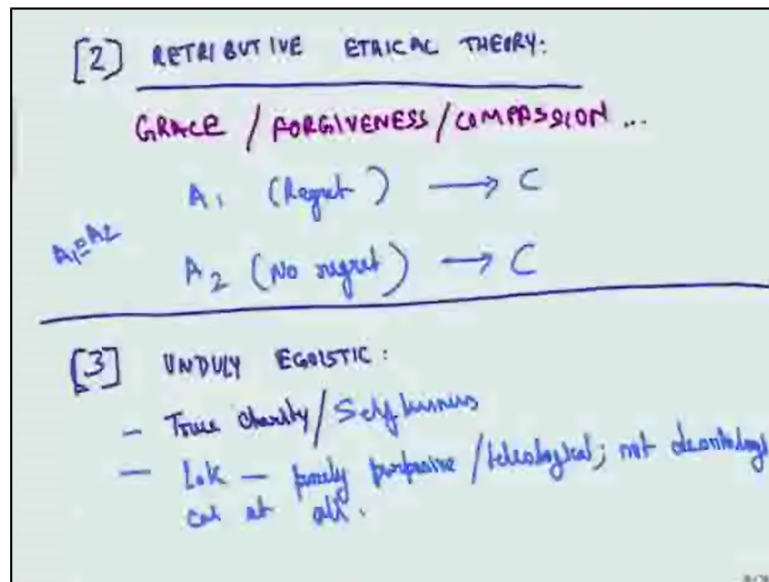 [2] RETRIBUTIVE ETHICAL THEORY:
GRACE / FORGIVENESS / COMPASSION ...
A1 (Regret) → C
A1 = A2
A2 (No regret) → C
[3] UNDULY EGOISTIC:
- True charity / Selflessness
- LoK - purely purposive / teleological; not deontologi
cal at all.